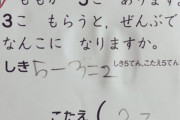 ももが 5こ あります。
3こ もらうと、ぜんぶで
なんこに なりますか。
しき5てん,こたえ5てん
しき 5-3=2
こたえ (